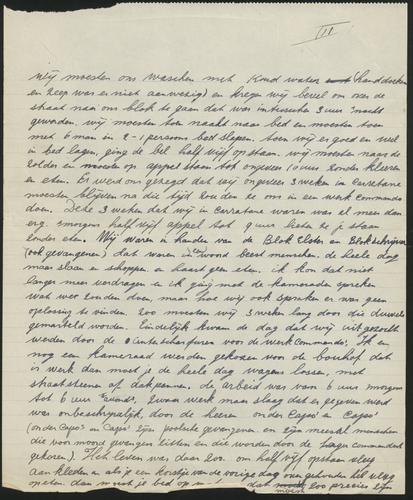 III
wij moesten ons wasschen met koud water (handdoeken
en zeep was er niet aanwezig) en kregen wij bevel om over de
straat naar ons blok te gaan dat was intusschen 3 uur 'snacht
geworden. wij moesten toen naakt naar bed en moesten toen
met 6 man in 2-1 persoons bed slapen. toen wij er goed en wel
in bed lagen, ging de bel half vijf opstaan. wij moesten naar de
zolder en moesten op appel staan tot ongeveer 10 uur zonder kleeren
en eten. Er werd ons gezegd dat wij ongeveer 3 weken in carretane
moesten blijven na die tijd zouden ze ons in een werk commando
doen. Deze 3 weken dat wij in carratane waren was al meer dan
erg. smorgens half vijf appel tot 9 uur liete ze je staan
zonder eten. Wij waren in handen van de Blok Elster en Blokschrijver
(ook gevangenen) dat waren in woord beest menschen. de heele dag
maar slaan en schoppen en haast geen eten. ik kon dat niet
langer meer verdragen en ik ging met de kameraden spreken
wat wer zouden doen, maar hoe wij ook spraken er was geen
oplossing te vinden. zoo moesten wij 3 weken lang door die duivels
gemarteld worden. Eindelijk kwam de dag dat wij uitgezocht
werden door de voor de werk Commando's. Ik en
nog een kameraad werden gekozen voor de bouwhof dat
is werk dan moet je de heele dag wagens lossen, met
straatsteene of dakpannen. de arbeid was van 6 uur smorgens
tot 6 uur 's avonds. Zwaar werk maar slaag dat er gegeven werd
was onbeschrijfelijk, door de heeren onder Capo's en Capo's
(onder Capo's en Capo's zijn poolsche gevangenen. en zijn meestal menschen
die voor moord gevangen zitten en die worden door de commandant
gekozen). Het leven was daar zoo. om half vijf opstaan vlug
aankleeden als je een korstje van de vorige dag over gehouden heb vlug
opeten. dan moest je bed op m dat moest zoo precies zijn